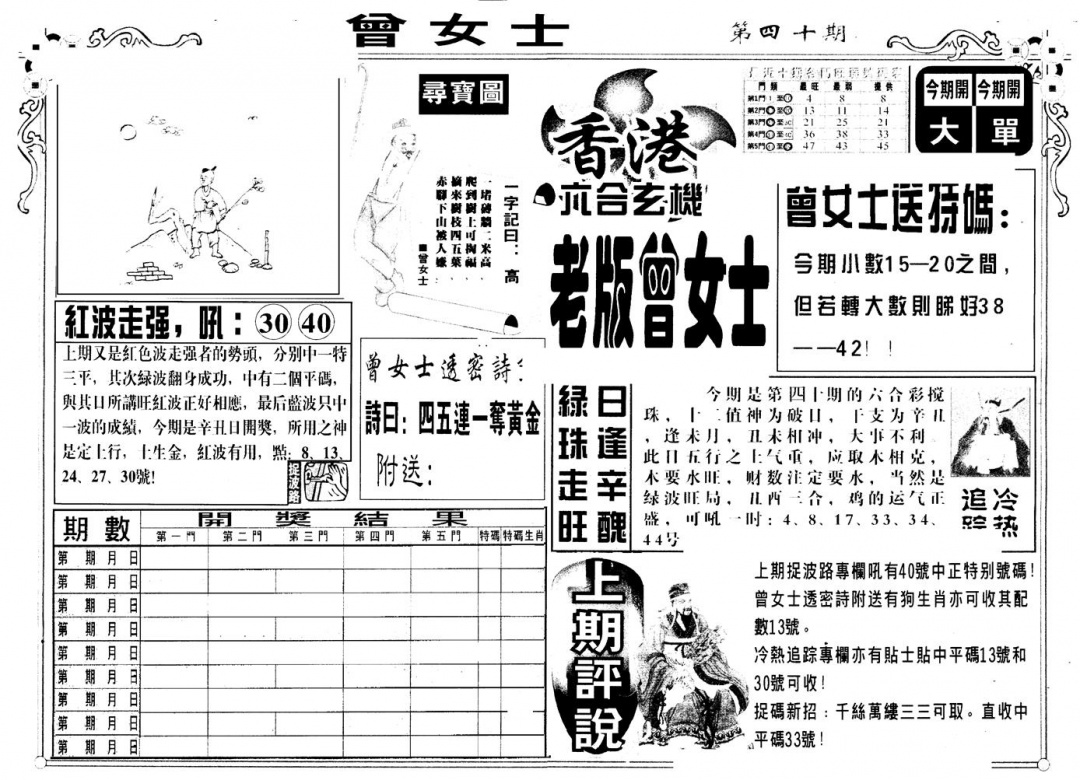 曾女士
第四十期
尋寶圖
一字記曰：高
一堵磚牆二米高，
爬到樹上可掏福，
摘來樹枝四五葉，
赤腳下山被人嫌。
■曾女士
香港
六合玄機
老版曾女士
門類 最旺 最弱 提供
第1門 4 8 8
第2門 13 11 14
第3門 21 25 21
第4門 36 38 33
第5門 47 43 45
今期開 今期開
大 單
曾女士送特碼：
今期小數15—20之間，
但若轉大數則睇好38
——42！！
紅波走强，吼：30 40
上期又是紅色波走强者的勢頭，分別中一特
三平，其次綠波翻身成功，中有二個平碼，
與其日所講旺紅波正好相應，最后藍波只中
一波的成績，今期是辛丑日開獎，所用之神
是定土行，土生金，紅波有用，點：8、13、
24、27、30號!
捉波路
曾女士透密詩：
詩曰：四五連一奪黃金
附送：
綠珠走旺
日逢辛醜
今期是第四十期的六合彩搅
珠，十二值神为破日，干支为辛丑
，逢未月，丑未相冲，大事不利。
此日五行之土气重，应取木相克，
木要水旺，财数注定要水，当然是
绿波旺局，丑酉三合，鸡的运气正
盛，可吼一时：4、8、17、33、34、
44号
冷热
追踪
期數 開獎結果
第一門 第二門 第三門 第四門 第五門 特碼 特碼生肖
第 期 月 日
第 期 月 日
第 期 月 日
第 期 月 日
第 期 月 日
第 期 月 日
第 期 月 日
第 期 月 日
第 期 月 日
上期評說
上期捉波路專欄吼有40號中正特别號碼!
曾女士透密詩附送有狗生肖亦可收其配
數13號。
冷熱追踪專欄亦有貼士貼中平碼13號和
30號可收!
捉碼新招：千絲萬縷三三可取。直收中
平碼33號!